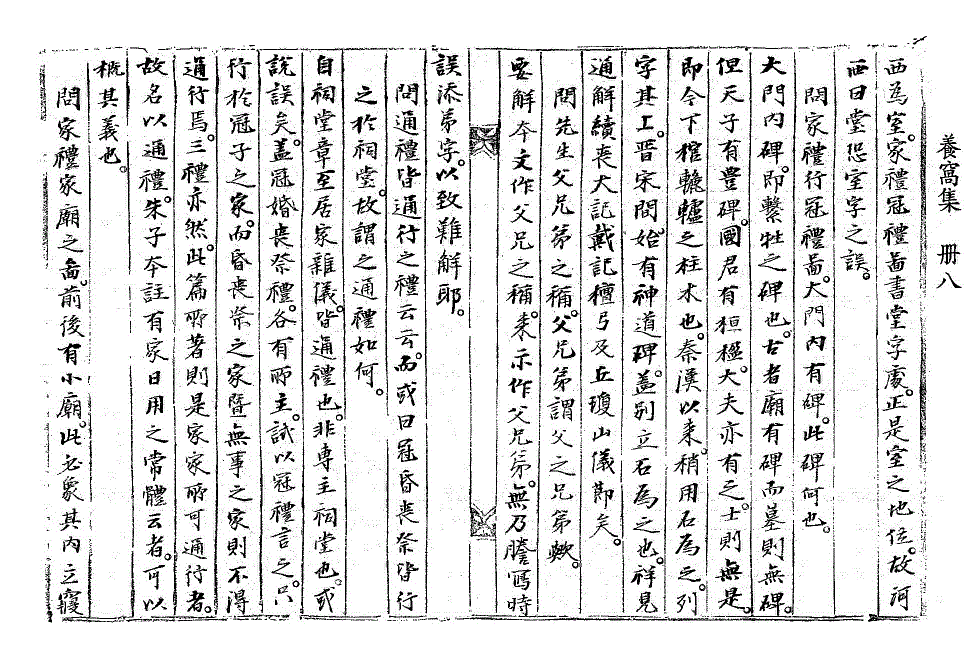 養窩集　冊八
西爲室。家禮冠禮啚書堂字處。正是室之地位。故河
西曰堂恐室字之誤。
問家禮行冠禮啚。大門內有碑。此碑何也。
大門內碑。即繫牲之碑也。古者廟有碑而墓則無碑。
但天子有豊碑。國君有桓楹。大夫亦有之。士則無是。
即今下棺轆轤之柱木也。秦漢以來。稍用石爲之。列
字其工。晋宋間。始有神道碑。盖别立石爲之也。祥見
通解續喪大記戴記檀弓及丘瓊山儀節矣。
問先生父兄弟之稱。父兄弟謂父之兄弟歟。
要解本文作父兄之稱。來示作父兄弟。無乃謄寫時
誤添弟字。以致難解耶。
問通禮皆通行之禮云云。而或曰冠昏喪祭皆行
之於祠堂。故謂之通禮如何。
自祠堂章至居家雜儀。皆通禮也。非專主祠堂也。或
說誤矣。盖冠婚喪祭禮。各有所主。試以冠禮言之。只
行於冠子之家。而昏喪祭之家曁無事之家則不得
通行焉。三禮亦然。此篇所著則是家家所可通行者。
故名以通禮。朱子本註有家日用之常體云者。可以
槪其義也。
問家禮家廟之啚。前後有小廟。此必象其內立寢